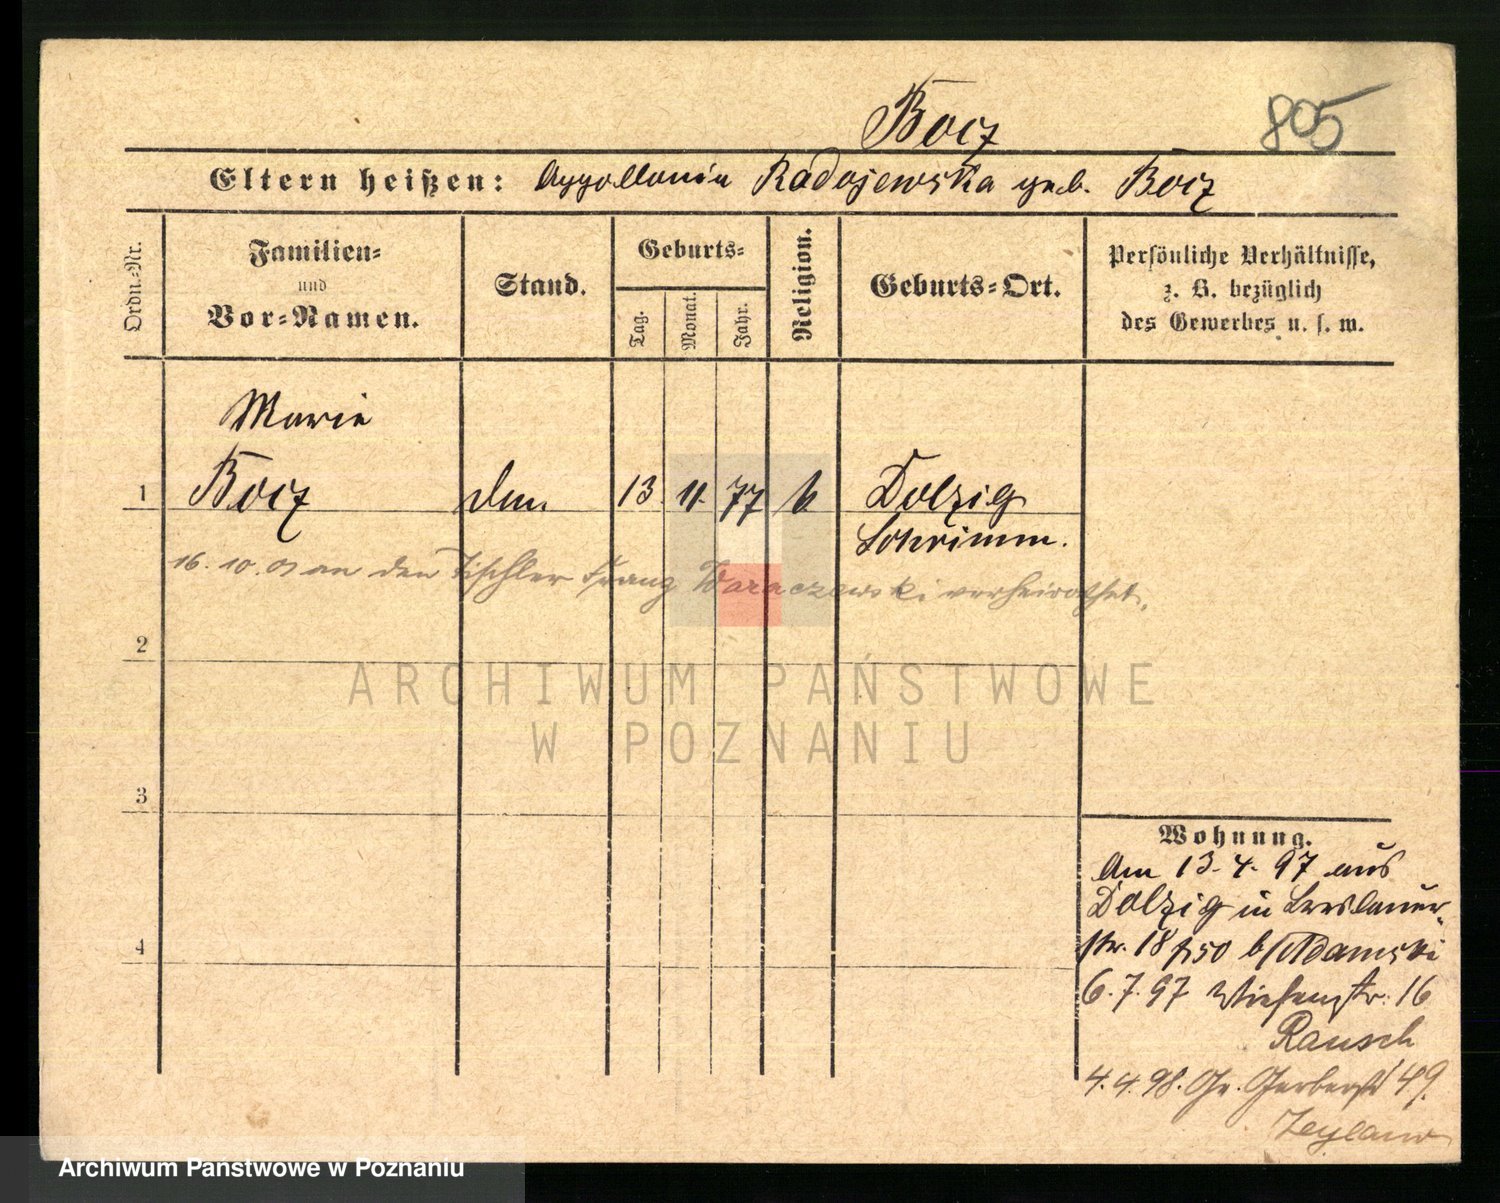 Bocz
805
Eltern heißen: Appollonia Radojewska geb. Bocz
Ordn.-Nr.
Familien-
und
Vor-Namen.
Stand.
Geburts-
Tag.
Monat.
Jahr.
Religion.
Geburts-Ort.
Persönliche Verhältnisse,
z. B. bezüglich
des Gewerbes u. s. w.
Marie
1 Bocz 13. 11. 77 k Dolzig
Schrimm.
16. 10. an den Tischler Franz Waraczewski verheirathet.
2
3
4
Wohnung.
Am 13. 4. 97 aus
Dolzig in Breslauer-
str. 18 b/Adamski
6. 7. 97 Wiesenstr. 16
Rausch
4. 4. 98. Gr. Gerberstr 49.
Zeyland
ARCHIWUM PAŃSTWOWE
W POZNANIU
Archiwum Państwowe w Poznaniu